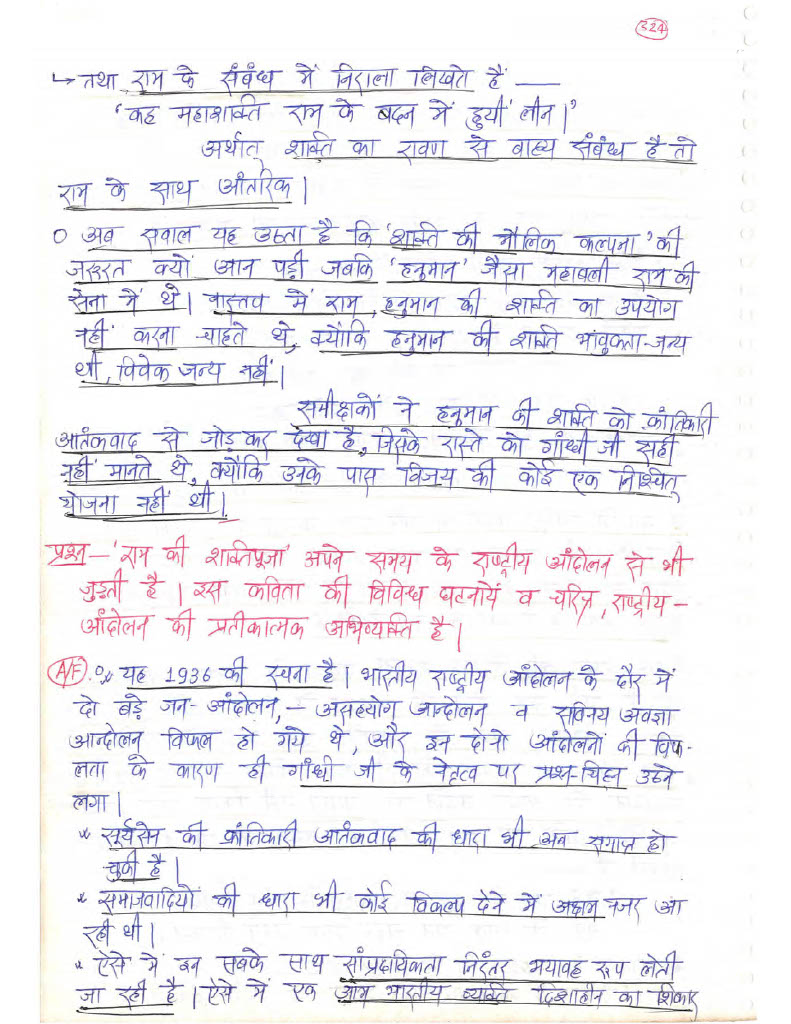 324
↳ तथा राम के संबंध में निराला लिखते हैं —
'कह महाशक्ति राम के बदन में हुयीं लीन।'
अर्थात् शक्ति का रावण से वाह्य संबंध है तो
राम के साथ आंतरिक।
० अब सवाल यह उठता है कि 'शक्ति की मौलिक कल्पना' की
जरूरत क्यों आन पड़ी जबकि 'हनुमान' जैसा महाबली राम की
सेना में थे। वास्तव में राम, हनुमान की शक्ति का उपयोग
नहीं करना चाहते थे, क्योंकि हनुमान की शक्ति भावुकता-जन्य
थी, विवेक जन्य नहीं।
समीक्षकों ने हनुमान की शक्ति को क्रांतिकारी
आतंकवाद से जोड़ कर देखा है, जिसके रास्ते को गाँधी जी सही
नहीं मानते थे, क्योंकि उनके पास विजय की कोई एक निश्चित्
योजना नहीं थी।
प्रश्न – 'राम की शक्तिपूजा' अपने समय के राष्ट्रीय आंदोलन से भी
जुड़ती है। इस कविता की विविध घटनायें व चरित्र, राष्ट्रीय –
आंदोलन की प्रतीकात्मक अभिव्यक्ति है।
(A/F). यह 1936 की रचना है। भारतीय राष्ट्रीय आंदोलन के दौर में
दो बड़े जन-आंदोलन, – असहयोग आन्दोलन व सविनय अवज्ञा
आन्दोलन विफल हो गये थे, और इन दोनो आंदोलनों की विफ-
लता के कारण ही गाँधी जी के नेतृत्व पर प्रश्न-चिह्न उठने
लगा।
* सूर्यसेन की क्रांतिकारी आतंकवाद की धारा भी अब समाप्त हो
चुकी है।
* समाजवादियों की धारा भी कोई विकल्प देने में अक्षम नजर आ
रही थी।
* ऐसे में इन सबके साथ सांप्रदायिकता निरंतर भयावह रूप लेती
जा रही है। ऐसे में एक आम भारतीय व्यक्ति दिशाहीन का शिकार